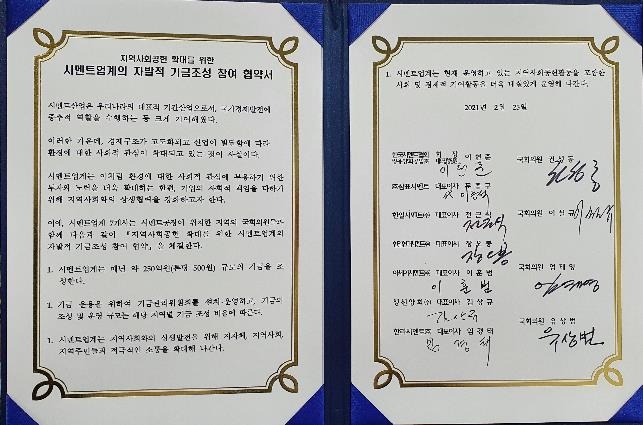 지역사회공헌 확대를 위한
시멘트업계의 자발적 기금조성 참여 협약서
시멘트산업은 우리나라의 대표적 기간산업으로서, 국가경제발전에
중추적 역할을 수행하는 등 크게 기여해왔다.
이러한 가운데, 경제구조가 고도화되고 산업이 발달함에 따라
환경에 대한 사회적 관심이 확대되고 있는 것이 사실이다.
시멘트업계는 이처럼 환경에 대한 사회적 관심에 부응하기 위한
투자와 노력을 더욱 확대하는 한편, 기업의 사회적 책임을 다하기
위해 지역사회와의 상생협력을 강화하고자 한다.
이에, 시멘트업계 7개사는 시멘트공장이 위치한 지역의 국회의원들과
함께 다음과 같이 「지역사회공헌 확대를 위한 시멘트업계의
자발적 기금조성 참여 협약」을 체결한다.
1. 시멘트업계는 매년 약 250억원(톤당 500원) 규모의 기금을 조
성한다.
1. 기금 운용을 위하여 기금관리위원회를 설치·운영하고, 기금의
조성 및 운영 규모는 해당 지역별 기금 조성 비율에 따른다.
1. 시멘트업계는 지역사회와의 상생발전을 위해 지자체, 지역사회,
지역주민들과 적극적인 소통을 확대해 나간다.
1. 시멘트업계는 현재 운영하고 있는 지역사회공헌활동을 포함한
사회 및 경제적 기여활동을 더욱 내실있게 운영해 나간다.
2021년 2월 25일
한국시멘트협회 회 장 이현준
국회의원 권성동
이현준
㈜삼표시멘트 대표이사 문종구
한일시멘트㈜ 대표이사 전근식
국회의원 이철규
전근식
대표이사 장오봉
아세아시멘트㈜ 대표이사 이훈범
국회의원 엄태영
이훈범
엄태영
쌍용양회㈜ 대표이사 김상규
김상규
국회의원 유상범
한라시멘트㈜ 대표이사 임경태
임경태
유상범